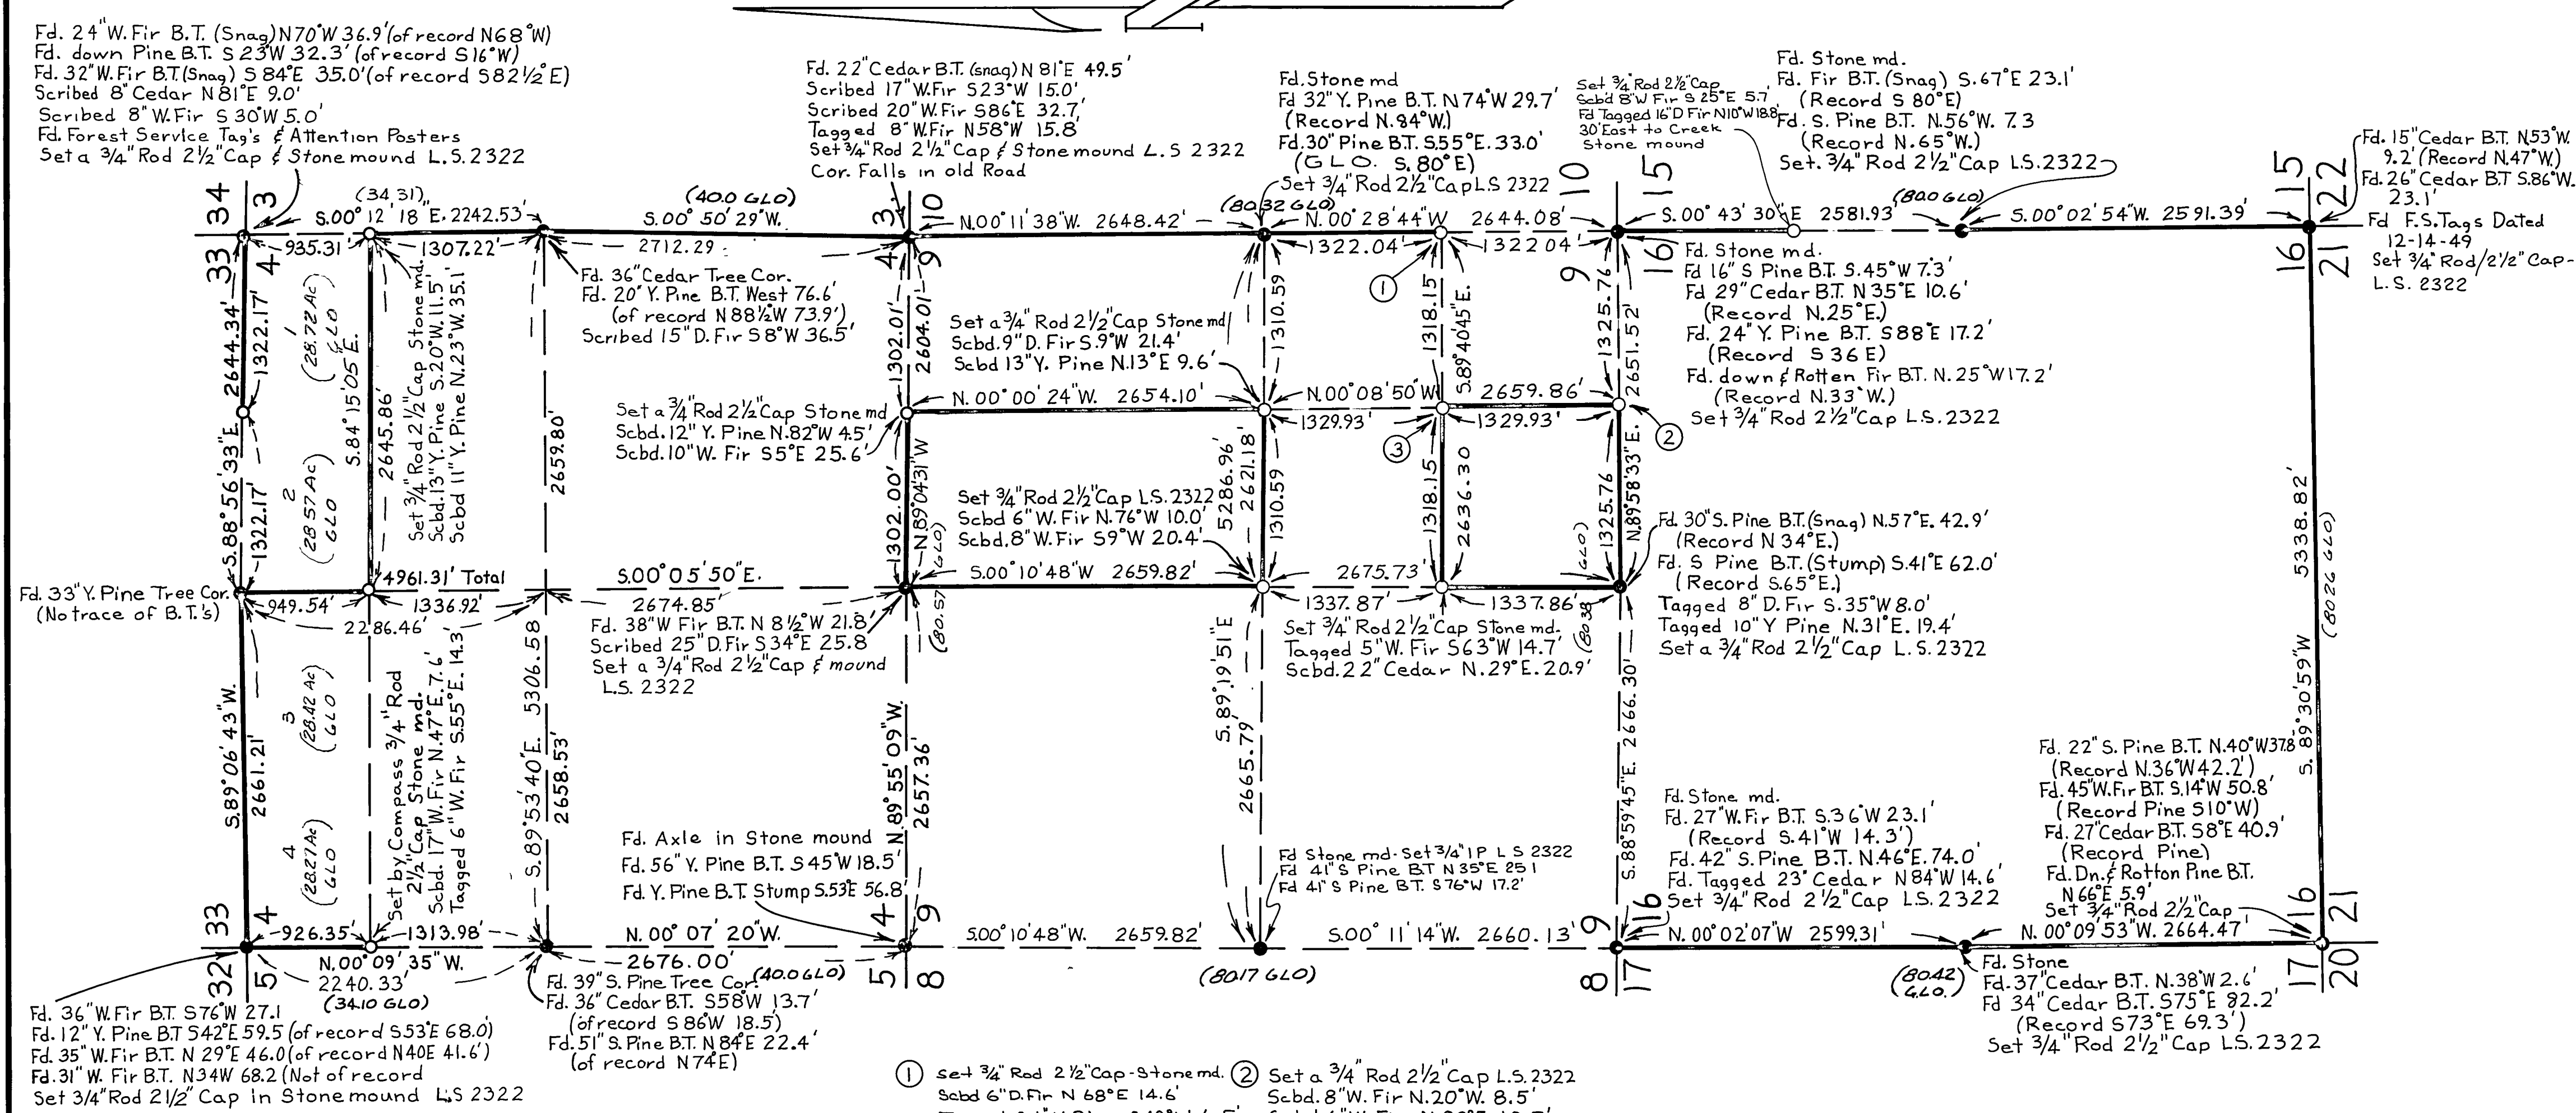 Fd. 24" W. Fir B.T. (Snag) N70°W 36.9' (of record N68°W)
Fd. down Pine B.T. S 23°W 32.3' (of record S16°W)
Fd. 32" W. Fir B.T. (Snag) S 84°E 35.0' (of record S82½°E)
Scribed 8" Cedar N81°E 9.0'
Scribed 8" W. Fir S 30°W 5.0'
Fd. Forest Service Tag's & Attention Posters
Set a 3/4" Rod 2½" Cap & Stone mound L.S. 2322
Fd. 22" Cedar B.T. (snag) N 81°E 49.5'
Scribed 17" W. Fir S23°W 15.0'
Scribed 20" W. Fir S86°E 32.7'
Tagged 8" W. Fir N58°W 15.8'
Set 3/4" Rod 2½" Cap & Stone mound L.S 2322
Cor. Falls in old Road
Fd. Stone md
Fd 32" Y. Pine B.T. N74°W 29.7'
(Record N.84°W.)
Fd. 30" Pine B.T. S55°E. 33.0'
(GLO. S. 80°E)
Set 3/4" Rod 2½" Cap L.S 2322
Set 3/4" Rod 2½" Cap
Scbd 8" W Fir S 25°E 5.7
Fd Tagged 16" D Fir N10°W 18.8'
30' East to Creek
Stone mound
Fd. Stone md.
Fd. Fir B.T. (Snag) S. 67°E 23.1'
(Record S 80°E)
Fd. S. Pine B.T. N.56°W. 7.3
(Record N.65°W.)
Set. 3/4" Rod 2½" Cap L.S. 2322
Fd. 15" Cedar B.T. N.53°W.
9.2' (Record N.47°W.)
Fd. 26" Cedar B.T S.86°W.
23.1'
Fd F.S. Tags Dated
12-14-49
Set 3/4" Rod/2½" Cap-
L.S. 2322
34 3
33 4
(34.31)
S.00° 12' 18 E. 2242.53'
935.31' 1307.22'
(40.0 GLO)
S.00° 50' 29" W.
2712.29
3 10
4 9
N.00° 11' 38" W. 2648.42'
(80.32 GLO)
N.00° 28' 44" W 2644.08'
1322.04' 1322 04'
10 15
9 16
S.00° 43' 30" E 2581.93'
(80.0 GLO)
S.00° 02' 54" W. 2591.39'
15 22
16 21
S. 88° 56' 33" E. 2644.34'
1322.17'
1322.17'
1 (28.72 Ac) GLO
2 (28 57 Ac) GLO
S.84° 15' 05" E.
2645.86'
Set 3/4" Rod 2½" Cap Stone md.
Scbd. 13" Y. Pine S. 20°W. 11.5'
Scbd 11" Y. Pine N. 23°W. 35.1'
Fd. 36" Cedar Tree Cor.
Fd. 20" Y. Pine B.T. West 76.6'
(of record N88½W 73.9')
Scribed 15" D. Fir S8°W 36.5'
2659.80'
Set a 3/4" Rod 2½" Cap Stone md
Scbd. 12" Y. Pine N.82°W 4.5'
Scbd. 10" W. Fir S5°E 25.6'
1302.01'
2604.01'
1302.00'
N.89°04'31" W
Set a 3/4" Rod 2½" Cap Stone md
Scbd. 9" D. Fir S.9°W 21.4'
Scbd 13" Y. Pine N.13°E 9.6'
N. 00° 00' 24" W. 2654.10'
1310.59
①
1318.15
S.89°40'45" E.
N.00° 08' 50" W 2659.86'
1329.93' 1329.93'
③
1325.76
2651.52'
②
Fd. Stone md.
Fd 16" S Pine B.T. S.45°W 7.3'
Fd 29" Cedar B.T. N 35°E 10.6'
(Record N.25°E.)
Fd. 24" Y. Pine B.T. S88°E 17.2'
(Record S 36 E)
Fd. down & Rotten Fir B.T. N. 25°W 17.2'
(Record N.33°W.)
Set 3/4" Rod 2½" Cap L.S. 2322
Set 3/4" Rod 2½" Cap L.S. 2322
Scbd 6" W. Fir N.76°W 10.0'
Scbd. 8" W. Fir S9°W 20.4'
5286.96'
2621.18'
1310.59
1318.15
2636.30
1325.76
N.89°58'33" E.
Fd. 30" S. Pine B.T. (Snag) N.57°E. 42.9'
(Record N 34°E.)
Fd. S Pine B.T. (Stump) S.41°E 62.0'
(Record S.65°E.)
Tagged 8" D. Fir S.35°W 8.0'
Tagged 10" Y Pine N.31°E. 19.4'
Set a 3/4" Rod 2½" Cap L.S. 2322
5338.82'
(80 26 GLO)
S. 89° 30' 59" W
Fd. 33" Y. Pine Tree Cor.
(No trace of B.T.'s)
4961.31' Total
949.54' 1336.92'
2286.46'
S.00° 05' 50" E.
2674.85'
(80.57 GLO)
S.00° 10' 48" W 2659.82'
2675.73'
1337.87' 1337.86'
(80.38 GLO)
Fd. 38" W Fir B.T. N 8½°W 21.8'
Scribed 25" D. Fir S34°E 25.8
Set a 3/4" Rod 2½" Cap & mound
L.S. 2322
Set 3/4" Rod 2½" Cap Stone md.
Tagged 5" W. Fir S63°W 14.7'
Scbd. 22" Cedar N. 29°E. 20.9'
S.89°06'43" W.
2661.21'
3 (28.42 Ac) GLO
4 (28.27 Ac) GLO
Set by Compass 3/4" Rod
2½" Cap Stone md.
Scbd. 17" W. Fir N.47°E. 7.6'
Tagged 6" W. Fir S.55°E. 14.3'
S.89°53'40" E. 5306.58
2658.53'
N.89°55'09" W.
2657.36'
S.89°19'51" E
2665.79'
S.88°59'45" E. 2666.30'
Fd. Axle in Stone mound
Fd. 56" Y. Pine B.T. S 45°W 18.5'
Fd Y. Pine B.T. Stump S.53°E 56.8'
Fd Stone md - Set 3/4" IP L S 2322
Fd 41" S Pine B.T N 35°E 25 1
Fd 41" S Pine B.T. S 76°W 17.2'
Fd. Stone md.
Fd. 27" W. Fir B.T. S.36°W 23.1'
(Record S.41°W 14.3')
Fd. 42" S. Pine B.T. N.46°E. 74.0'
Fd. Tagged 23" Cedar N 84°W 14.6'
Set 3/4" Rod 2½" Cap L.S. 2322
Fd. 22" S. Pine B.T. N.40°W 37.8'
(Record N.36°W 42.2')
Fd. 45" W. Fir B.T. S.14°W 50.8'
(Record Pine S10°W)
Fd. 27" Cedar B.T. S8°E 40.9'
(Record Pine)
Fd. Dn. & Rotton Pine B.T.
N 66°E 5.9'
Set 3/4" Rod 2½" Cap
33 4
32 5
926.35' 1313.98'
N. 00° 09' 35" W.
2240.33'
(34.10 GLO)
N. 00° 07' 20" W.
2676.00'
(40.0 GLO)
4 9
5 8
S.00° 10' 48" W. 2659.82'
(80.17 GLO)
S.00° 11' 14" W. 2660.13'
9 16
8 17
N. 00° 02' 07" W 2599.31'
(80.42 GLO.)
N. 00° 09' 53" W. 2664.47'
16 21
17 20
Fd. 36" W. Fir B.T. S76°W 27.1
Fd. 12" Y. Pine B.T S42°E 59.5 (of record S53°E 68.0)
Fd. 35" W. Fir B.T. N 29°E 46.0 (of record N40E 41.6')
Fd. 31" W. Fir B.T. N34W 68.2 (Not of record
Set 3/4" Rod 2 1/2" Cap in Stone mound L.S 2322
Fd. 39" S. Pine Tree Cor.
Fd. 36" Cedar B.T. S58°W 13.7'
(of record S 86W 18.5')
Fd. 51" S. Pine B.T. N 84°E 22.4'
(of record N74E)
Fd. Stone
Fd. 37" Cedar B.T. N.38°W 2.6'
Fd 34" Cedar B.T. S75°E 82.2'
(Record S73°E 69.3')
Set 3/4" Rod 2½" Cap L.S. 2322
① Set 3/4" Rod 2½" Cap-Stone md. ② Set a 3/4" Rod 2½" Cap L.S. 2322
Scbd 6" D. Fir N 68°E 14.6' Scbd. 8" W. Fir N. 20°W. 8.5'